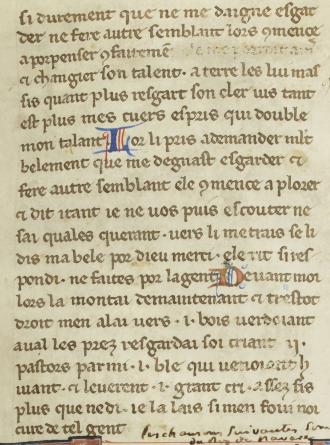 si durement que ne me daigne esgar
der ne fere autre semblant lors ꝯmence
a porpenser ꝯfaitemẽ
ci changier son talent. a terre les lui mas
sis quant plus resgart son cler uis tant
est plus mes cuers espris qui double
mon talant Lor li pris a demander mlt
belement que me degnast esgarder ⁊
fere autre semblant ele ꝯmence a plorer
⁊ dit itant ie ne uos puis escouter ne
sai quales querant. uers li me trais se li
dis ma bele por dieu merci. ele rit si res
pondi. ne faites por la gent Deuant moi
lors la montai demaintenant ⁊ trestot
droit men alai uers .i. bois uerdoiant
aual les prez resgardai soi criant .ij.
pastors parmi .i. ble qui uenoient h
uiant. ⁊ leuerent .i. grant cri. assez fis
plus que ne di. ie la lais si men foui noi
cure de tel gent
les chansons suiuantes sont
du Roy de Nauarre